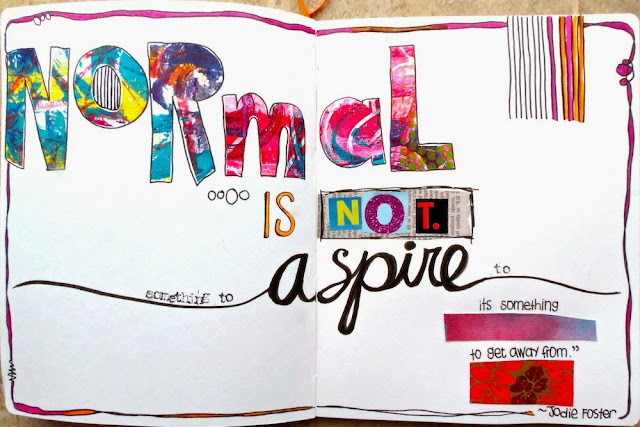 NORmaL
IS NOT.
something to aspire to
its something
to get away from."
~Jodie Foster